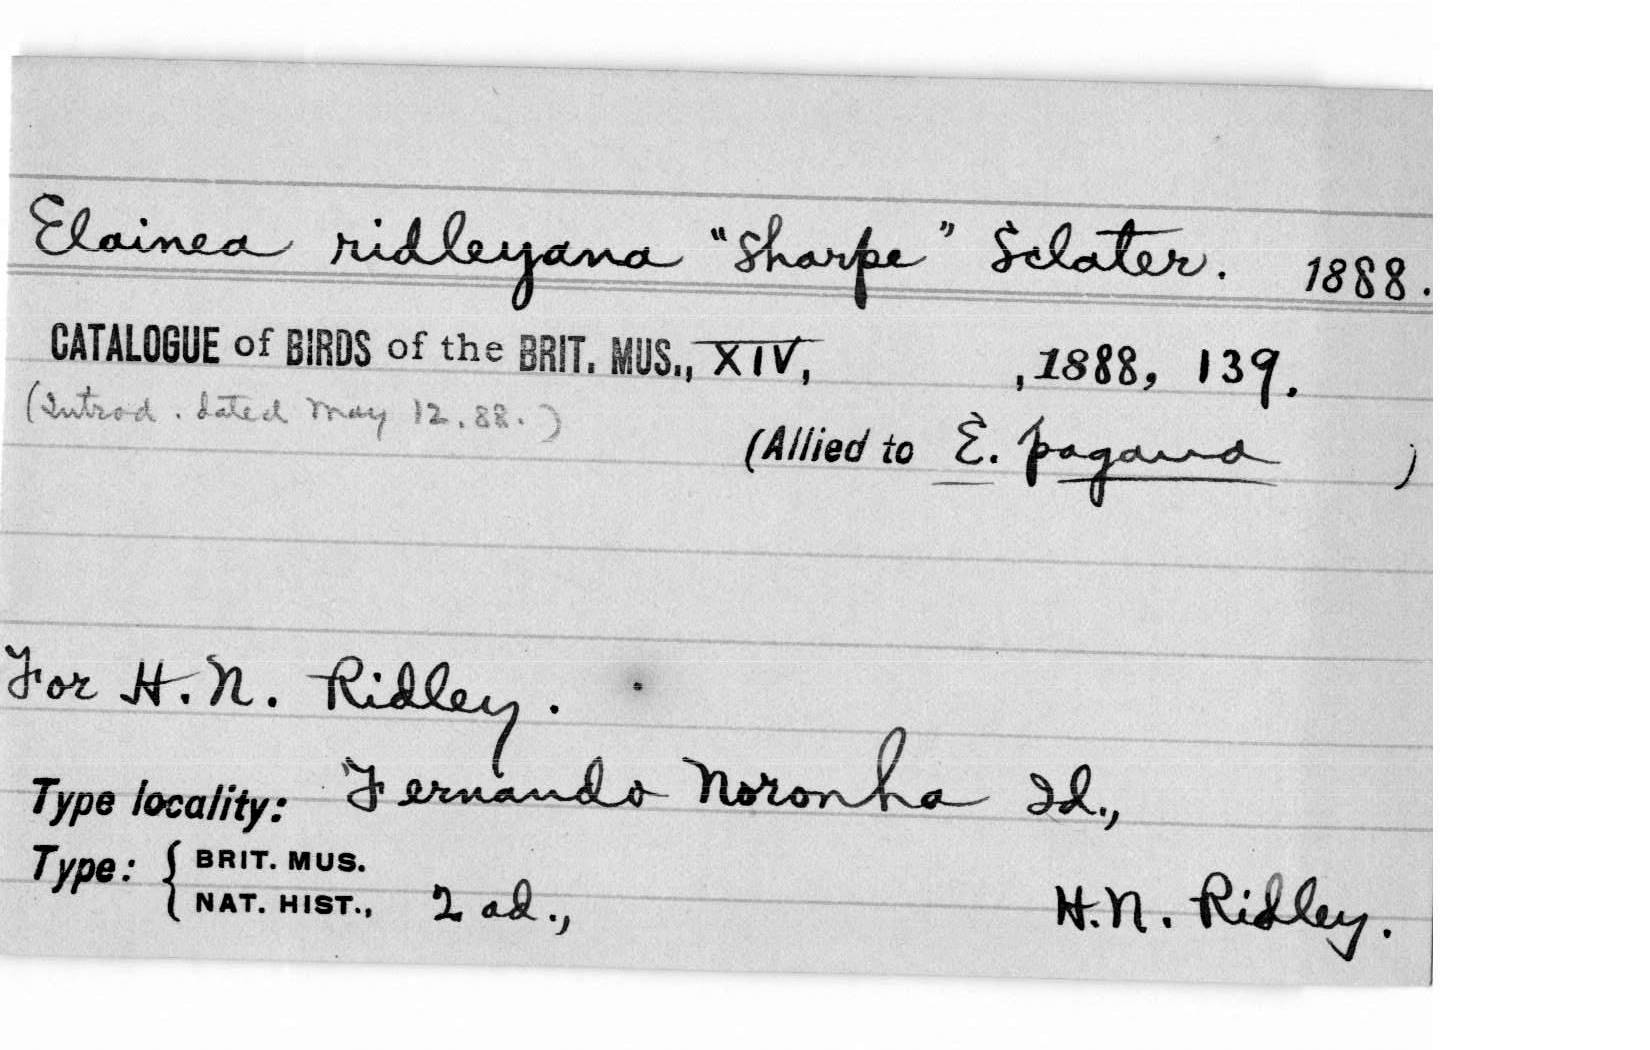 Elainea ridleyana "Sharpe" Sclater. 1888.
CATALOGUE of BIRDS of the BRIT. MUS., XIV, , 1888, 139.
(Introd. dated May 12. 88.)
(Allied to E. pagana )
For H. N. Ridley.
Type locality: Fernando Noronha Id.,
Type: { BRIT. MUS.
NAT. HIST., 2 ad., H. N. Ridley.